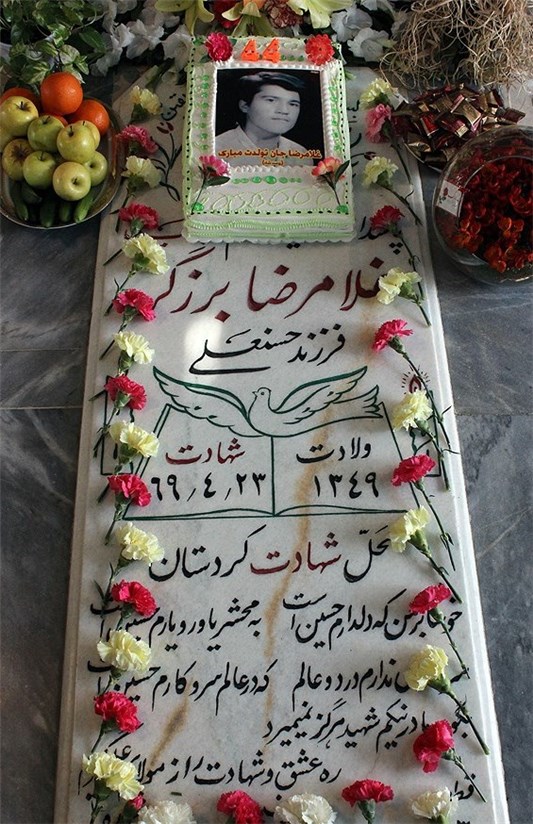 44
غلامرضا جان تولدت مبارک
غلامرضا برزگر
فرزند حسنعلی
ولادت شهادت
۱۳۴۹ ۶۹٫۴٫۲۳
محل شهادت کردستان
خوشا بر من که دلدارم حسین است به محشر یاور و یارم حسین است
ندارم در دو عالم که در عالم سر و کارم حسین است
مادر نیکم شهید هرگز نمیمیرد
ره عشق و شهادت را ز مولا